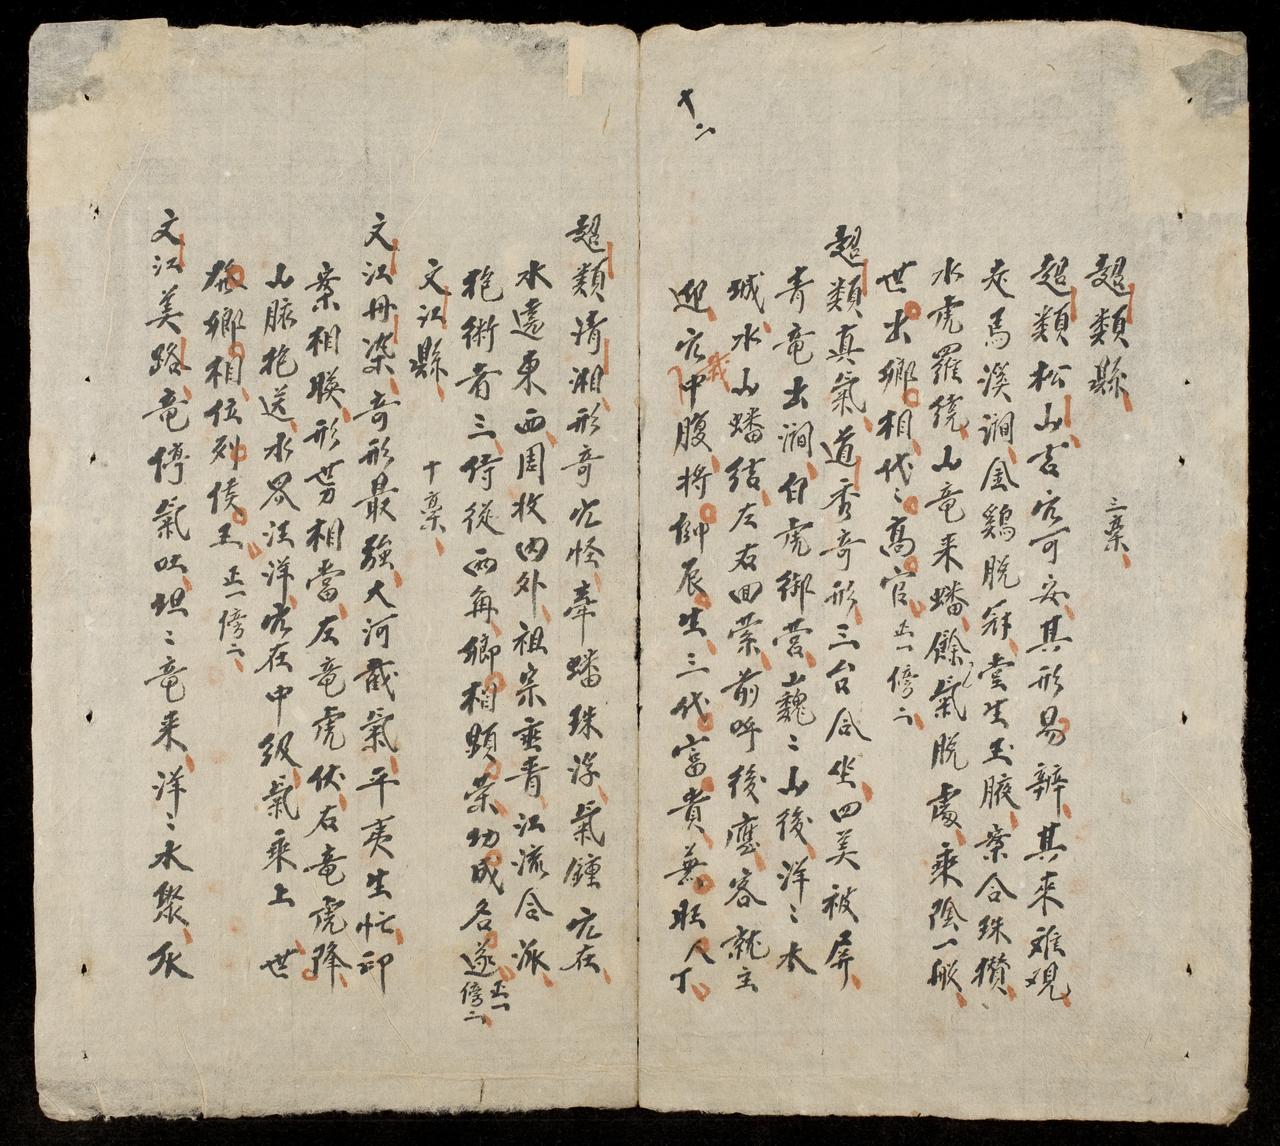 十二
超類縣 三案
超類松山吉穴可安其形易辨其來难观
走馬溪澗金鷄脱冠堂生玉腋案合珠攅
水虎羅繞山竜来蟠餘氣脱處乘陰一般
世出鄉相代〻髙官 正一傍二
超類真氣道秀奇形三台合坐四美被屏
青竜士澗白虎御营巍〻山後洋〻水
城水山蟠结左右回縈前呼後應客就主
迎穴中腹將帥辰生三代富貴無旺人丁
超類清湘形奇穴怪牽蟠珠浮氣鍾穴在
水遶東西周牧内外祖宗垂青江流合派
抱術者三侍從两角鄉相顕荣功成名遂 正一傍二
文江縣 十案
文江丹染奇形最強大河截氣平夷生忙卯
案相暎形势相當左竜虎伏右竜虎降
山脉抱送水界汪洋穴在中级氣乘上 世
發鄉相位列侯王 正一傍二
文江美路竜停氣吐坦〻竜来洋〻水聚